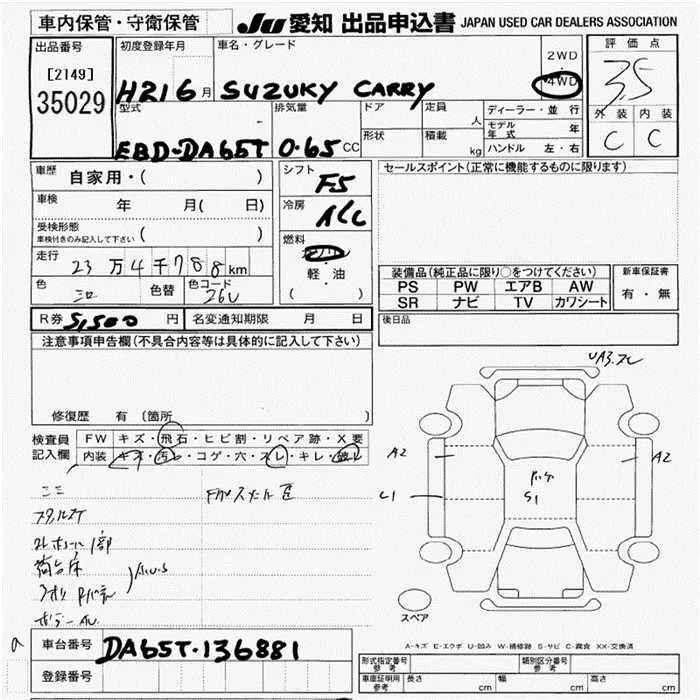 車内保管・守衛保管
JU 愛知 出品申込書 JAPAN USED CAR DEALERS ASSOCIATION
出品番号
[2149]
35029
初度登録年月
H21 6月
車名・グレード
SUZUKY CARRY
2WD
・
4WD
評価点
3.5
外装 内装
C C
型式
EBD-DA65T
排気量
0.65 CC
ドア
形状
定員
人
積載
kg
ディーラー・並行
モデル年式 年
ハンドル 左・右
車歴 自家用・( )
車検 年 月( 日)
受検形態
車検付きのみ記入して下さい ( )
走行 23万4千788km
色
色替
色コード
26U
シフト
F5
冷房
A/C
燃料
軽・油
( )
R券 5,500 円 名変通知期限 月 日
セールスポイント(正常に機能するものに限ります)
装備品(純正品に限り○をつけてください)
PS PW エアB AW
SR ナビ TV カワシート
新車保証書
有・無
後日品
注意事項申告欄(不具合内容等は具体的に記入して下さい)
修復歴 有 〔箇所
検査員記入欄
FW キズ・飛石・ヒビ割・リペア跡・X要
内装 キズ・汚レ・コゲ・穴・スレ・キレ・破レ
A2
A2
S1
スペア
A-キズ E-エクボ U-凹み W-補修跡 S-サビ C-腐食 XX-交換済
車台番号 DA65T-136881
登録番号
形式指定番号 参考
類別区分番号 参考
車庫証明用 参考 長さ cm 幅 cm 高さ cm